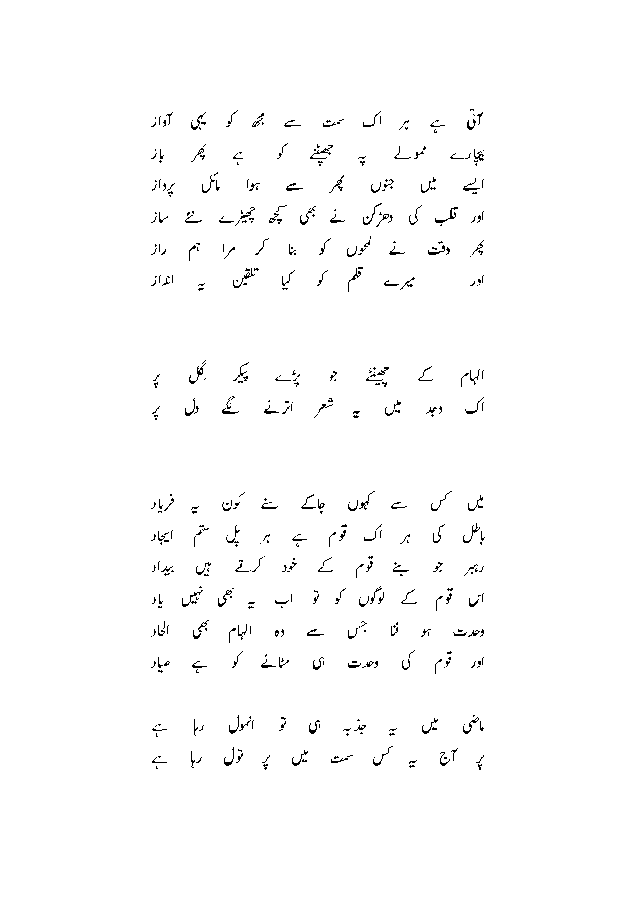 آتی ہے ہر اک سمت سے مجھ کو یہی آواز
بیچارے ممولے پہ جھپٹنے کو ہے پھر باز
ایسے میں جنوں پھر سے ہوا مائل پرداز
اور قلب کی دھڑکن نے بھی کچھ چھیڑے نئے ساز
پھر وقت نے لمحوں کو بنا کر مرا ہم راز
اور میرے قلم کو کیا تلقین یہ انداز
الہام کے چھینٹے جو پڑے پیکر گِل پر
اک وجد میں یہ شعر اترنے لگے دل پر
میں کس سے کہوں جاکے سنے کون یہ فریاد
باطل کی ہر اک قوم ہے ہر پل ستم ایجاد
رہبر جو بنے قوم کے خود کرتے ہیں بیداد
اس قوم کے لوگوں کو تو اب یہ بھی نہیں یاد
وحدت ہو فنا جس سے وہ الہام بھی الحاد
اور قوم کی وحدت ہی مٹانے کو ہے صیاد
ماضی میں یہ جذبہ ہی تو انمول رہا ہے
پر آج یہ کس سمت میں پر تول رہا ہے